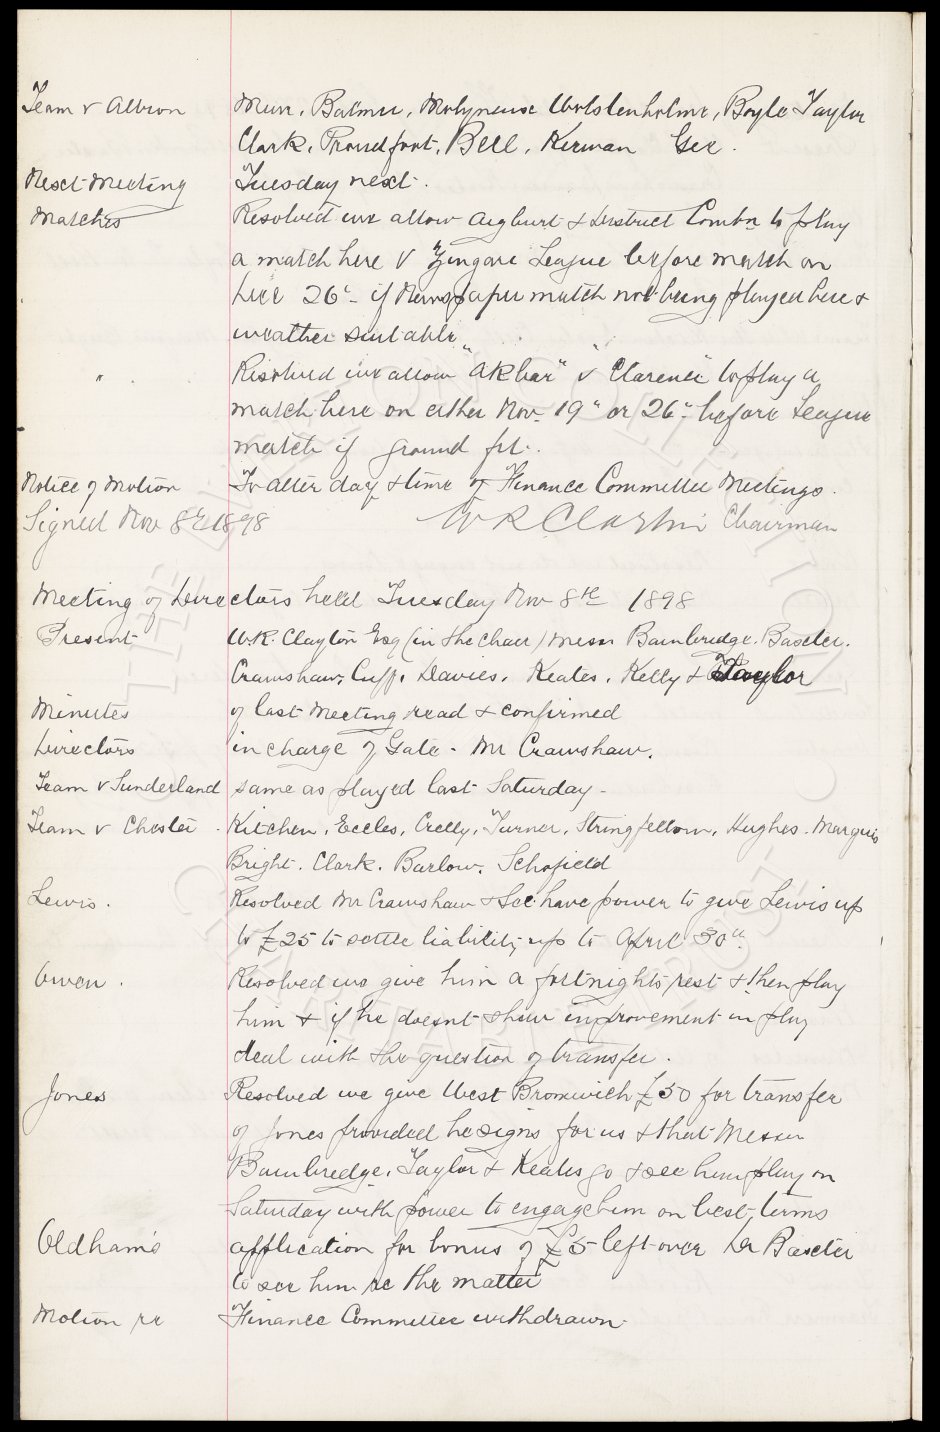 Team v Albion Muir, Balmer, Molyneux Wolstenholme, Boyle Taylor
Clark, Proudfoot, Bell, Kirwan Gee.
Next Meeting Tuesday next.
Matches Resolved we allow Aigburt & District Combn to play
a match here v Zingari League before match on
Dec 26th if Newspaper match not being played here &
weather suitable
" Resolved we allow "Akbar" v "Clarence" to play a
match here on either Nov. 19th or 26th before League
match if ground fit.
Notice of Motion To alter day & time of Finance Committee Meetings.
Signed Nov 8th 1898 W R Clayton Chairman
Meeting of Directors held Tuesday Nov 8th 1898
Present W.R. Clayton Esq (in the chair) Messrs Bainbridge, Baxter,
Crawshaw, Cuff, Davies, Keates, Kelly & Taylor
Minutes of last meeting read & confirmed
Directors in charge of Gate - Mr Crawshaw.
Team v Sunderland same as played last Saturday -
Team v Chester. Kitchen, Eccles, Crelly, Turner, Stringfellow, Hughes, Marquis
Bright, Clark, Barlow, Schofield
Lewis. Resolved Mr Crawshaw & Sec have power to give Lewis up
to £25 to settle liability up to April 30th.
Owen. Resolved we give him a fortnights rest & then play
him & if he doesnt shew improvement in play
deal with the question of transfer.
Jones Resolved we give West Bromwich £50 for transfer
of Jones provided he signs for us & that Messrs
Bainbridge, Taylor & Keates go & see him play on
Saturday with power to engage him on best terms
Oldham's application for bonus of £5 left over Dr Baxter
to see him re the matter
Motion re Finance Committee withdrawn.